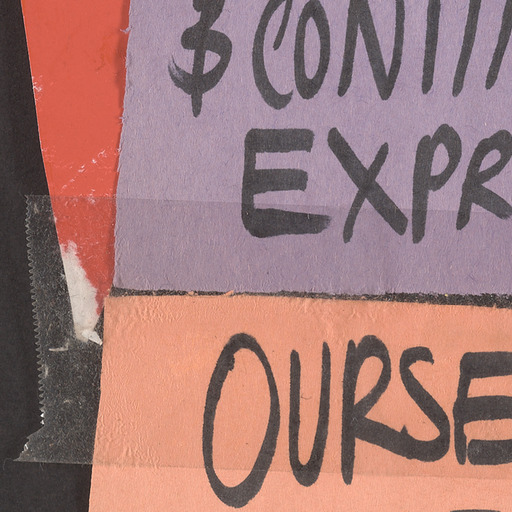 & CONTIN
EXPR
OURSE